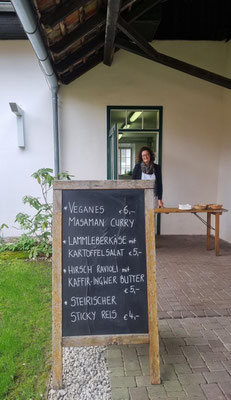 • VEGANES €6,-
MASAMAN CURRY
• LAMMLEBERKÄSE mit
KARTOFFELSALAT €5,-
• HIRSCH RAVIOLI mit
KAFFIR-INGWER BUTTER
€5,-
• STEIRISCHER
STICKY REIS €4,-